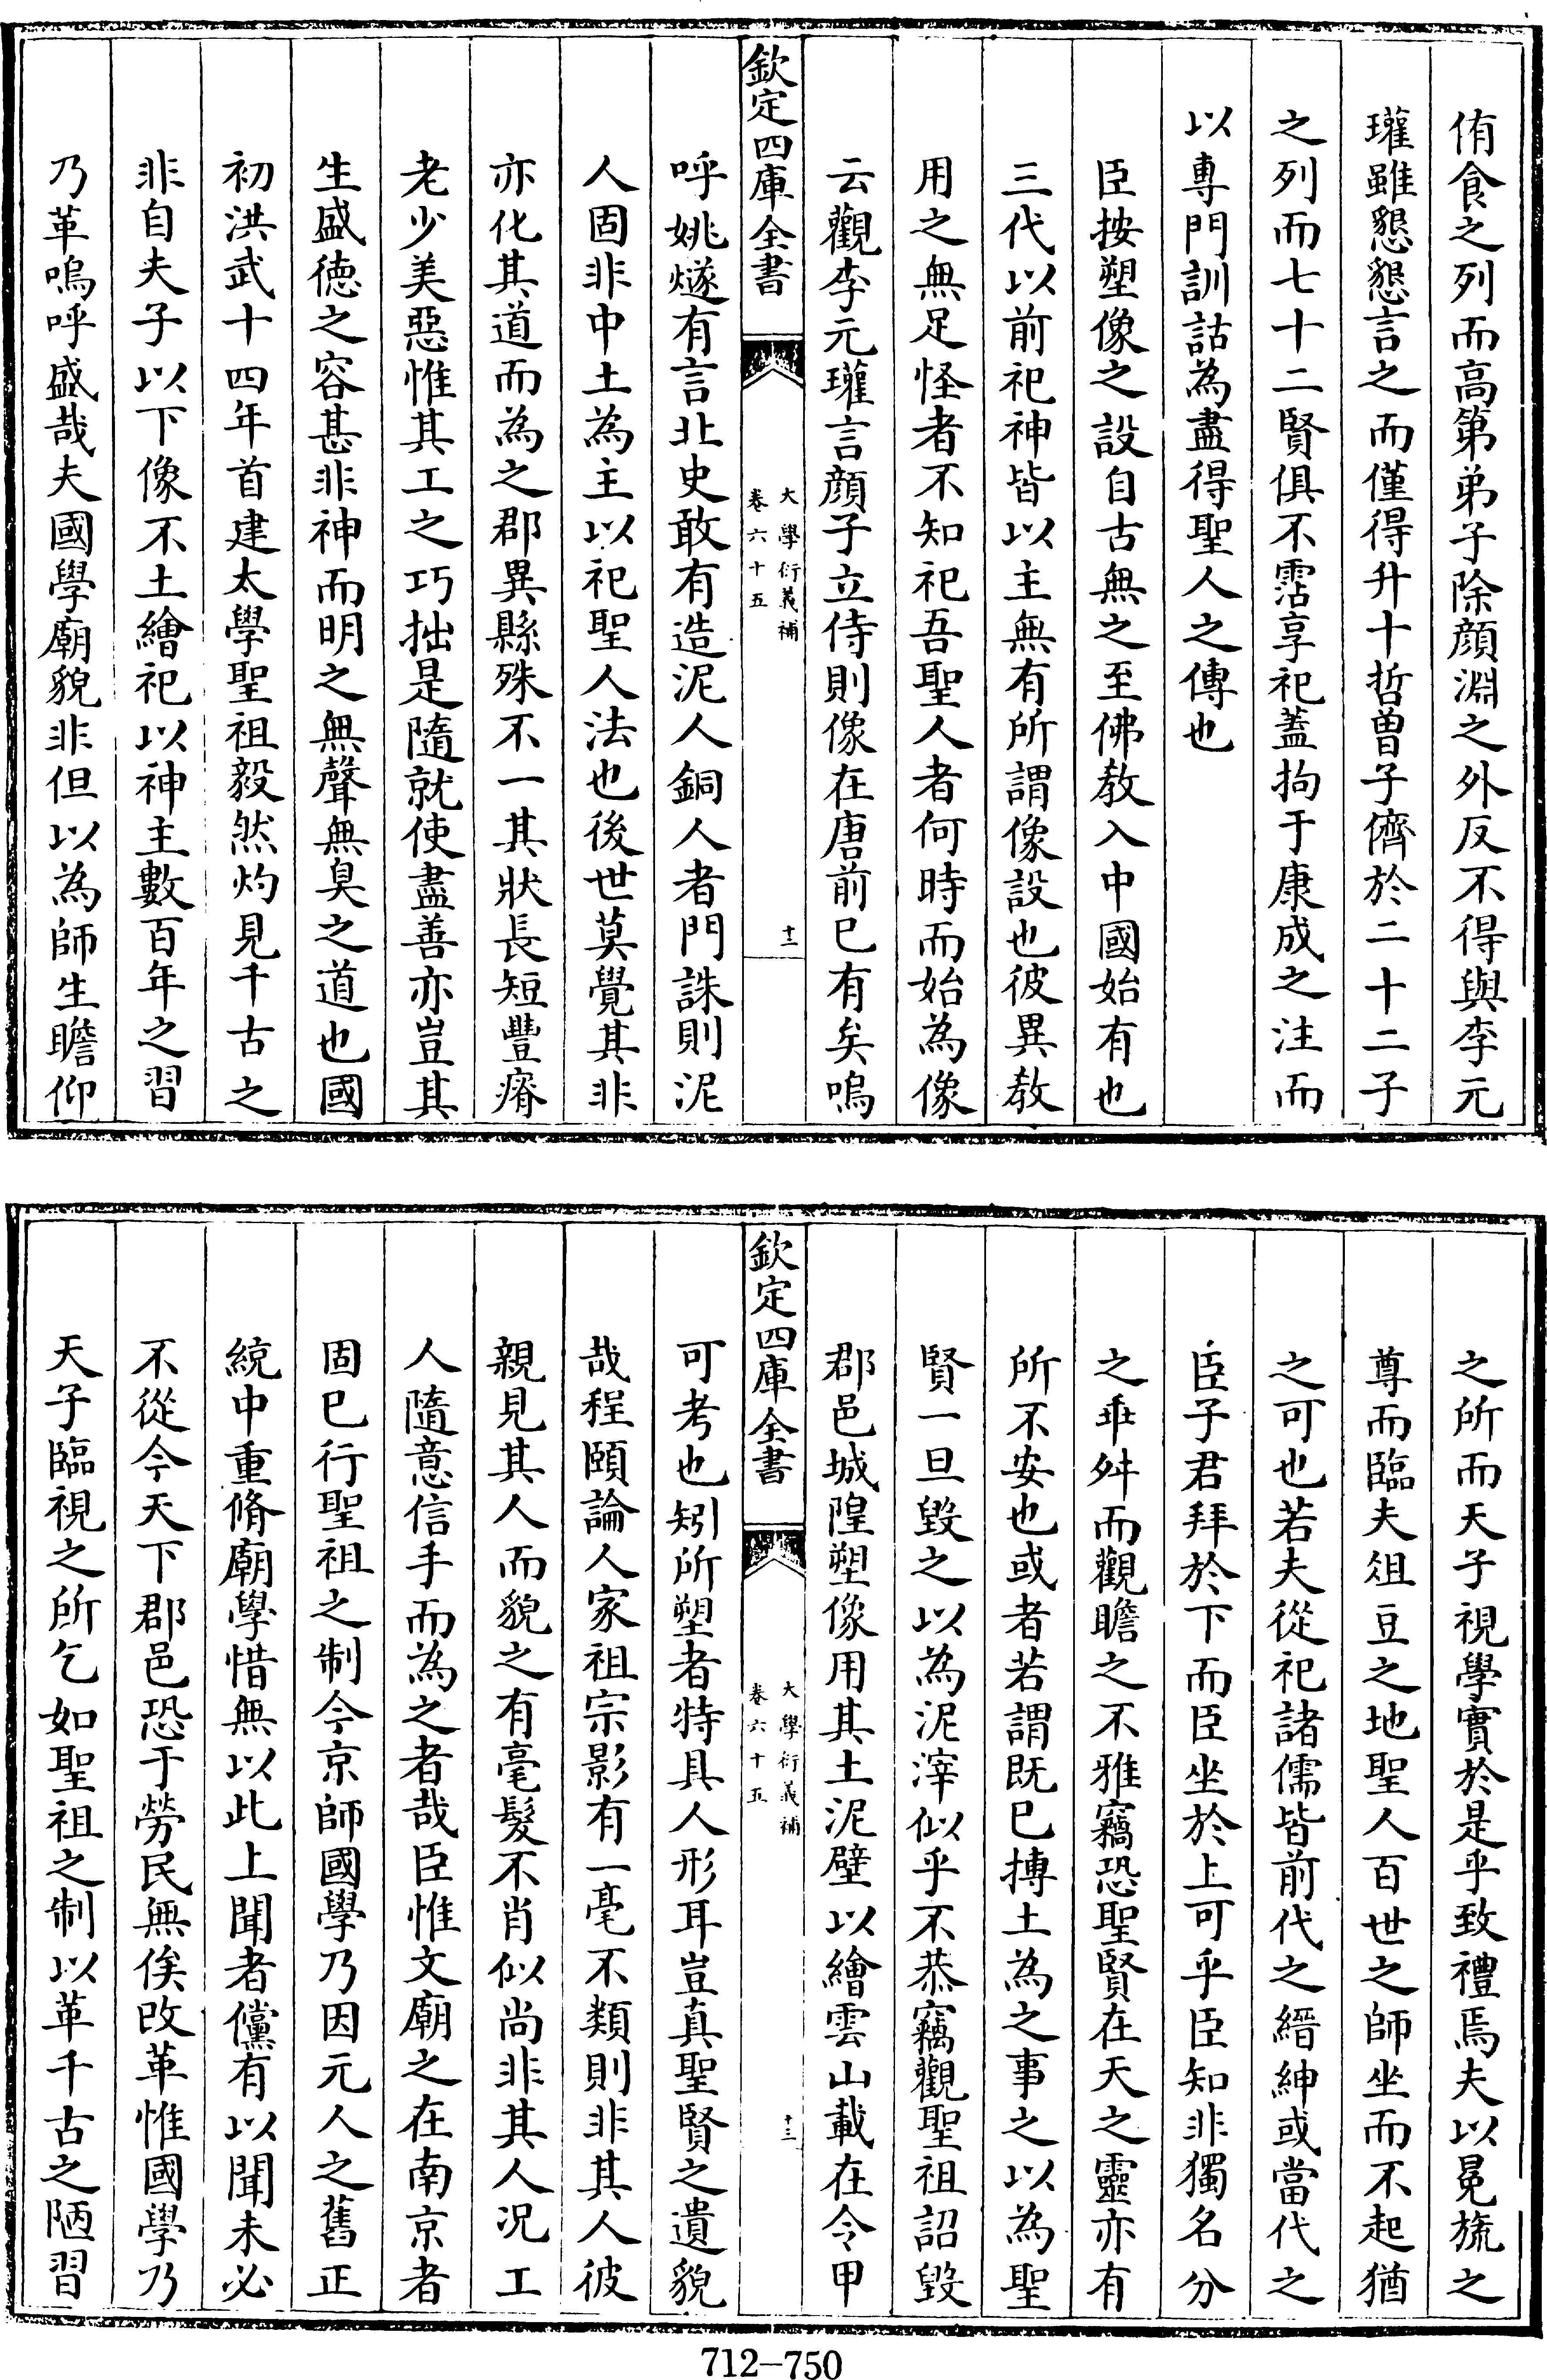 侑食之列而高第弟子除顔淵之外反不得與李元
瓘雖懇懇言之而僅得升十哲曽子儕於二十二子
之列而七十二賢俱不霑享祀蓋拘于康成之注而
以專門訓詁為盡得聖人之傳也
臣按塑像之設自古無之至佛教入中國始有也
三代以前祀神皆以主無有所謂像設也彼異教
用之無足怪者不知祀吾聖人者何時而始為像
云觀李元瓘言顔子立侍則像在唐前已有矣嗚
欽定四庫全書
大學衍義補
卷六十五
十二
呼姚燧有言北史敢有造泥人銅人者門誅則泥
人固非中土為主以祀聖人法也後世莫覺其非
亦化其道而為之郡異縣殊不一其狀長短豐瘠
老少美惡惟其工之巧拙是隨就使盡善亦豈其
生盛徳之容甚非神而明之無聲無臭之道也國
初洪武十四年首建太學聖祖毅然灼見千古之
非自夫子以下像不土繪祀以神主數百年之習
乃革嗚呼盛哉夫國學廟貌非但以為師生瞻仰
之所而天子視學實於是乎致禮焉夫以冕旒之
尊而臨夫俎豆之地聖人百世之師坐而不起猶
之可也若夫從祀諸儒皆前代之縉紳或當代之
臣子君拜於下而臣坐於上可乎臣知非獨名分
之乖舛而觀瞻之不雅竊恐聖賢在天之靈亦有
所不安也或者若謂既已摶土為之事之以為聖
賢一旦毀之以為泥滓似乎不恭竊觀聖祖詔毀
郡邑城隍塑像用其土泥壁以繪雲山載在令甲
欽定四庫全書
大學衍義補
卷六十五
十三
可考也矧所塑者特具人形耳豈真聖賢之遺貌
哉程頤論人家祖宗影有一毫不類則非其人彼
親見其人而貌之有毫髮不肖似尚非其人況工
人隨意信手而為之者哉臣惟文廟之在南京者
固已行聖祖之制今京師國學乃因元人之舊正
統中重脩廟學惜無以此上聞者儻有以聞未必
不從今天下郡邑恐于勞民無俟改革惟國學乃
天子臨視之所乞如聖祖之制以革千古之陋習
712-750